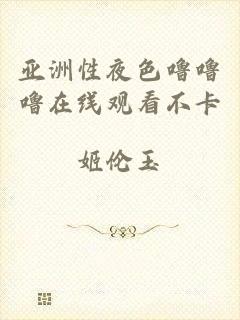 亚洲性夜色噜噜
噜在线观看不卡
姬伦玉